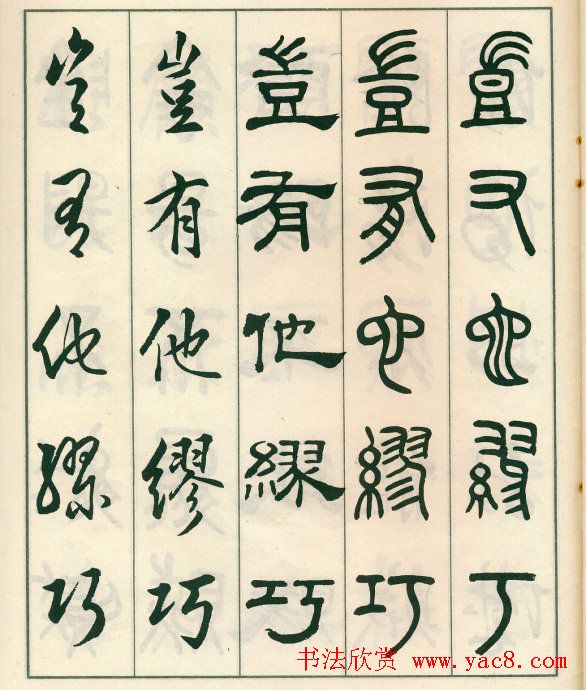 豈有他繆巧
豈有他繆巧
豈有他繆巧
豈有他繆巧
豈有他繆巧
书法欣赏 www.yac8.com